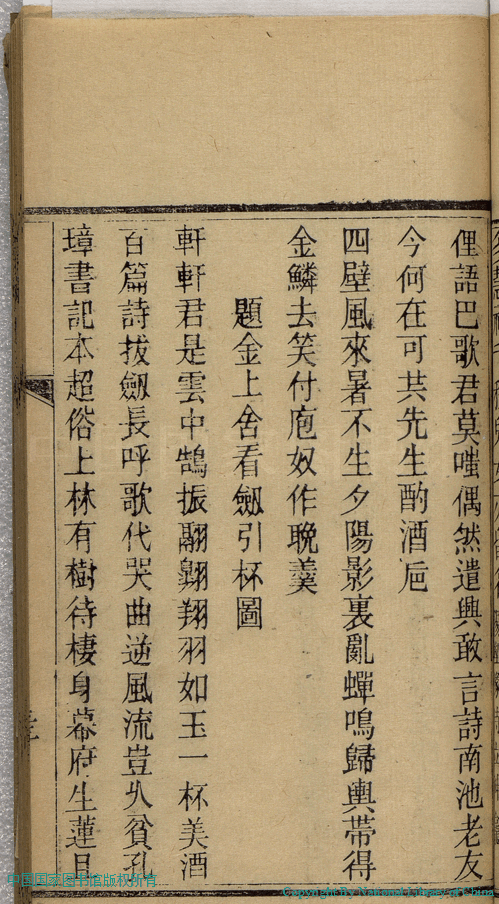 俚語巴歌君莫嗤偶然遣興敢言詩南池老友
今何在可共先生酌酒巵
四壁風來暑不生夕陽影裏亂蟬鳴歸輿帶得
金鱗去笑付庖奴作晚羹
題金上舍看劔引杯圖
軒軒君是雲中鵠振翮翱翔羽如玉一杯美酒
百篇詩拔劔長呼歌代哭曲逆風流豈久貧孔
璋書記本超俗上林有樹待棲身幕府生蓮且
中国国家图书馆版权所有
Copyright by National Library of China